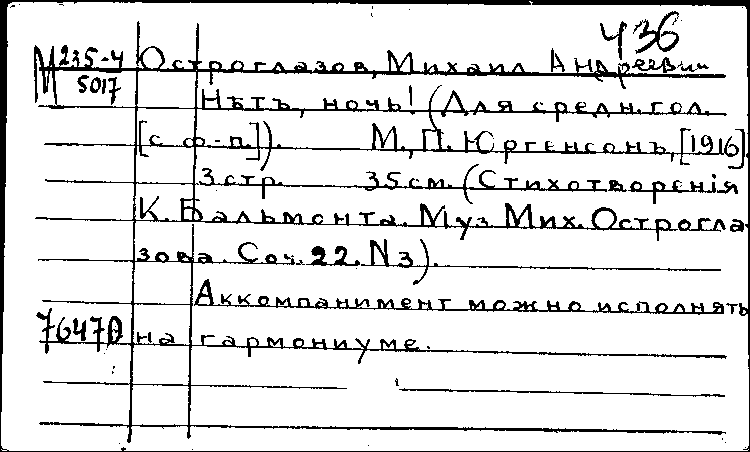 436
М 235-4 Остроглазов, Михаил Андреевич
5017
Нѣтъ, ночь! (Для средн. гол.
[с ф-п.]). М., П. Юргенсонъ, [1916].
3 стр. 35 см. (Стихотворенія
К. Бальмонта. Муз. Мих. Острогла-
зова. Соч. 22. N 3).
Аккомпанимент можно исполнять
на гармониуме.